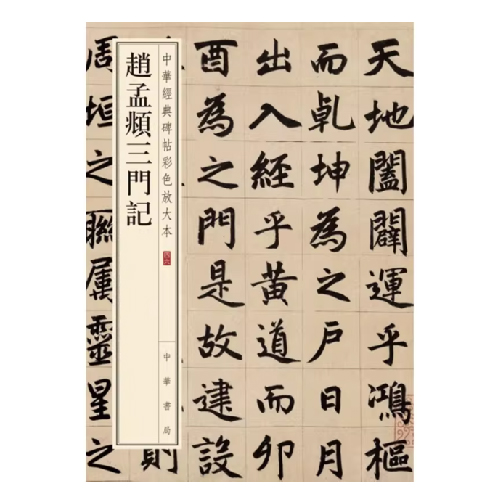 天地闔闢運乎鴻樞
而乾坤為之戶日月
出入經乎黃道而卯
酉為之門是故建設
則
中華經典碑帖彩色放大本
中華書局
趙孟頫三門記
周垣之聯屬靈星之